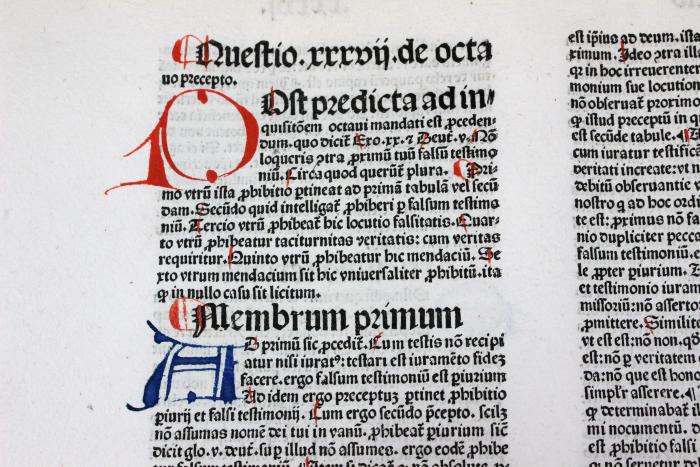 Questio. xxxvij. de octa
uo precepto.
Ost predicta ad in/
quisitõem octaui mandati est ꝓceden-
dum. quo dicit̃ Exo. xx. ⁊ Deut̃. v. Nõ
loqueris ꝯtra ꝓximũ tuũ falsũ testimo
niũ. Circa quod querũt̃ plura. Pri-
mo vtrũ ista ꝓhibitio ꝑtineat ad primã tabulã vel secũ
dam. Secũdo quid intelligat̃ ꝓhiberi ꝑ falsum testimo
niũ. Tercio vtrũ ꝓhibeat̃ hic locutio falsitatis. Quar-
to vtrũ ꝓhibeatur taciturnitas veritatis: cum veritas
requiritur. Quinto vtrũ ꝓhibeatur hic mendaciũ. Se
xto vtrum mendacium sit hic vniuersaliter ꝓhibitũ. ita
ꝙ in nullo casu sit licitum.
Membrum primum
AD primũ sic ꝓcedit̃. Cum testis nõ recipi
atur nisi iuratꝰ: testari est iuramẽto fidez
facere. ergo falsum testimoniũ est ꝑiurium
Ad idem ergo preceptuz ꝑtinet ꝓhibitio
ꝑiurij et falsi testimonij. Cum ergo secũdo p̃cepto. scilz
nõ assumas nomẽ dei tui in vanũ. ꝓhibeat̃ ꝑiurium sic̃
dicit glo. v. deut̃. suꝑ illud nõ assumes. ergo eodẽ ꝓhibe
est ip̃ius ad deum. ista
ximum. Ideo ꝯtra ill
qꝛ in hoc irreuerenter
monium siue locution
nõ obseruat̃ proximo
ꝙ istud preceptũ in q
est secũde tabule.
cum iuratur testifica
veritati increate: vt n
debitũ obseruantie v
nostro ꝙ ad hoc ordi
te est: ꝓximus nõ fa
nio dupliciter pecca
falsum testimoniũ. e
le ꝓpter ꝑiurium. T
et testimonio iuram
missoriũ: nõ asserto
ꝓmittere. Similite
vt est est: nõ non. qd
est: nõ ꝑ veritatem
da: nõ que est hono
simpl'r asserere.
ꝙ determinabat̃ il
mi nocumentũ. d
est ꝓhibitio fall